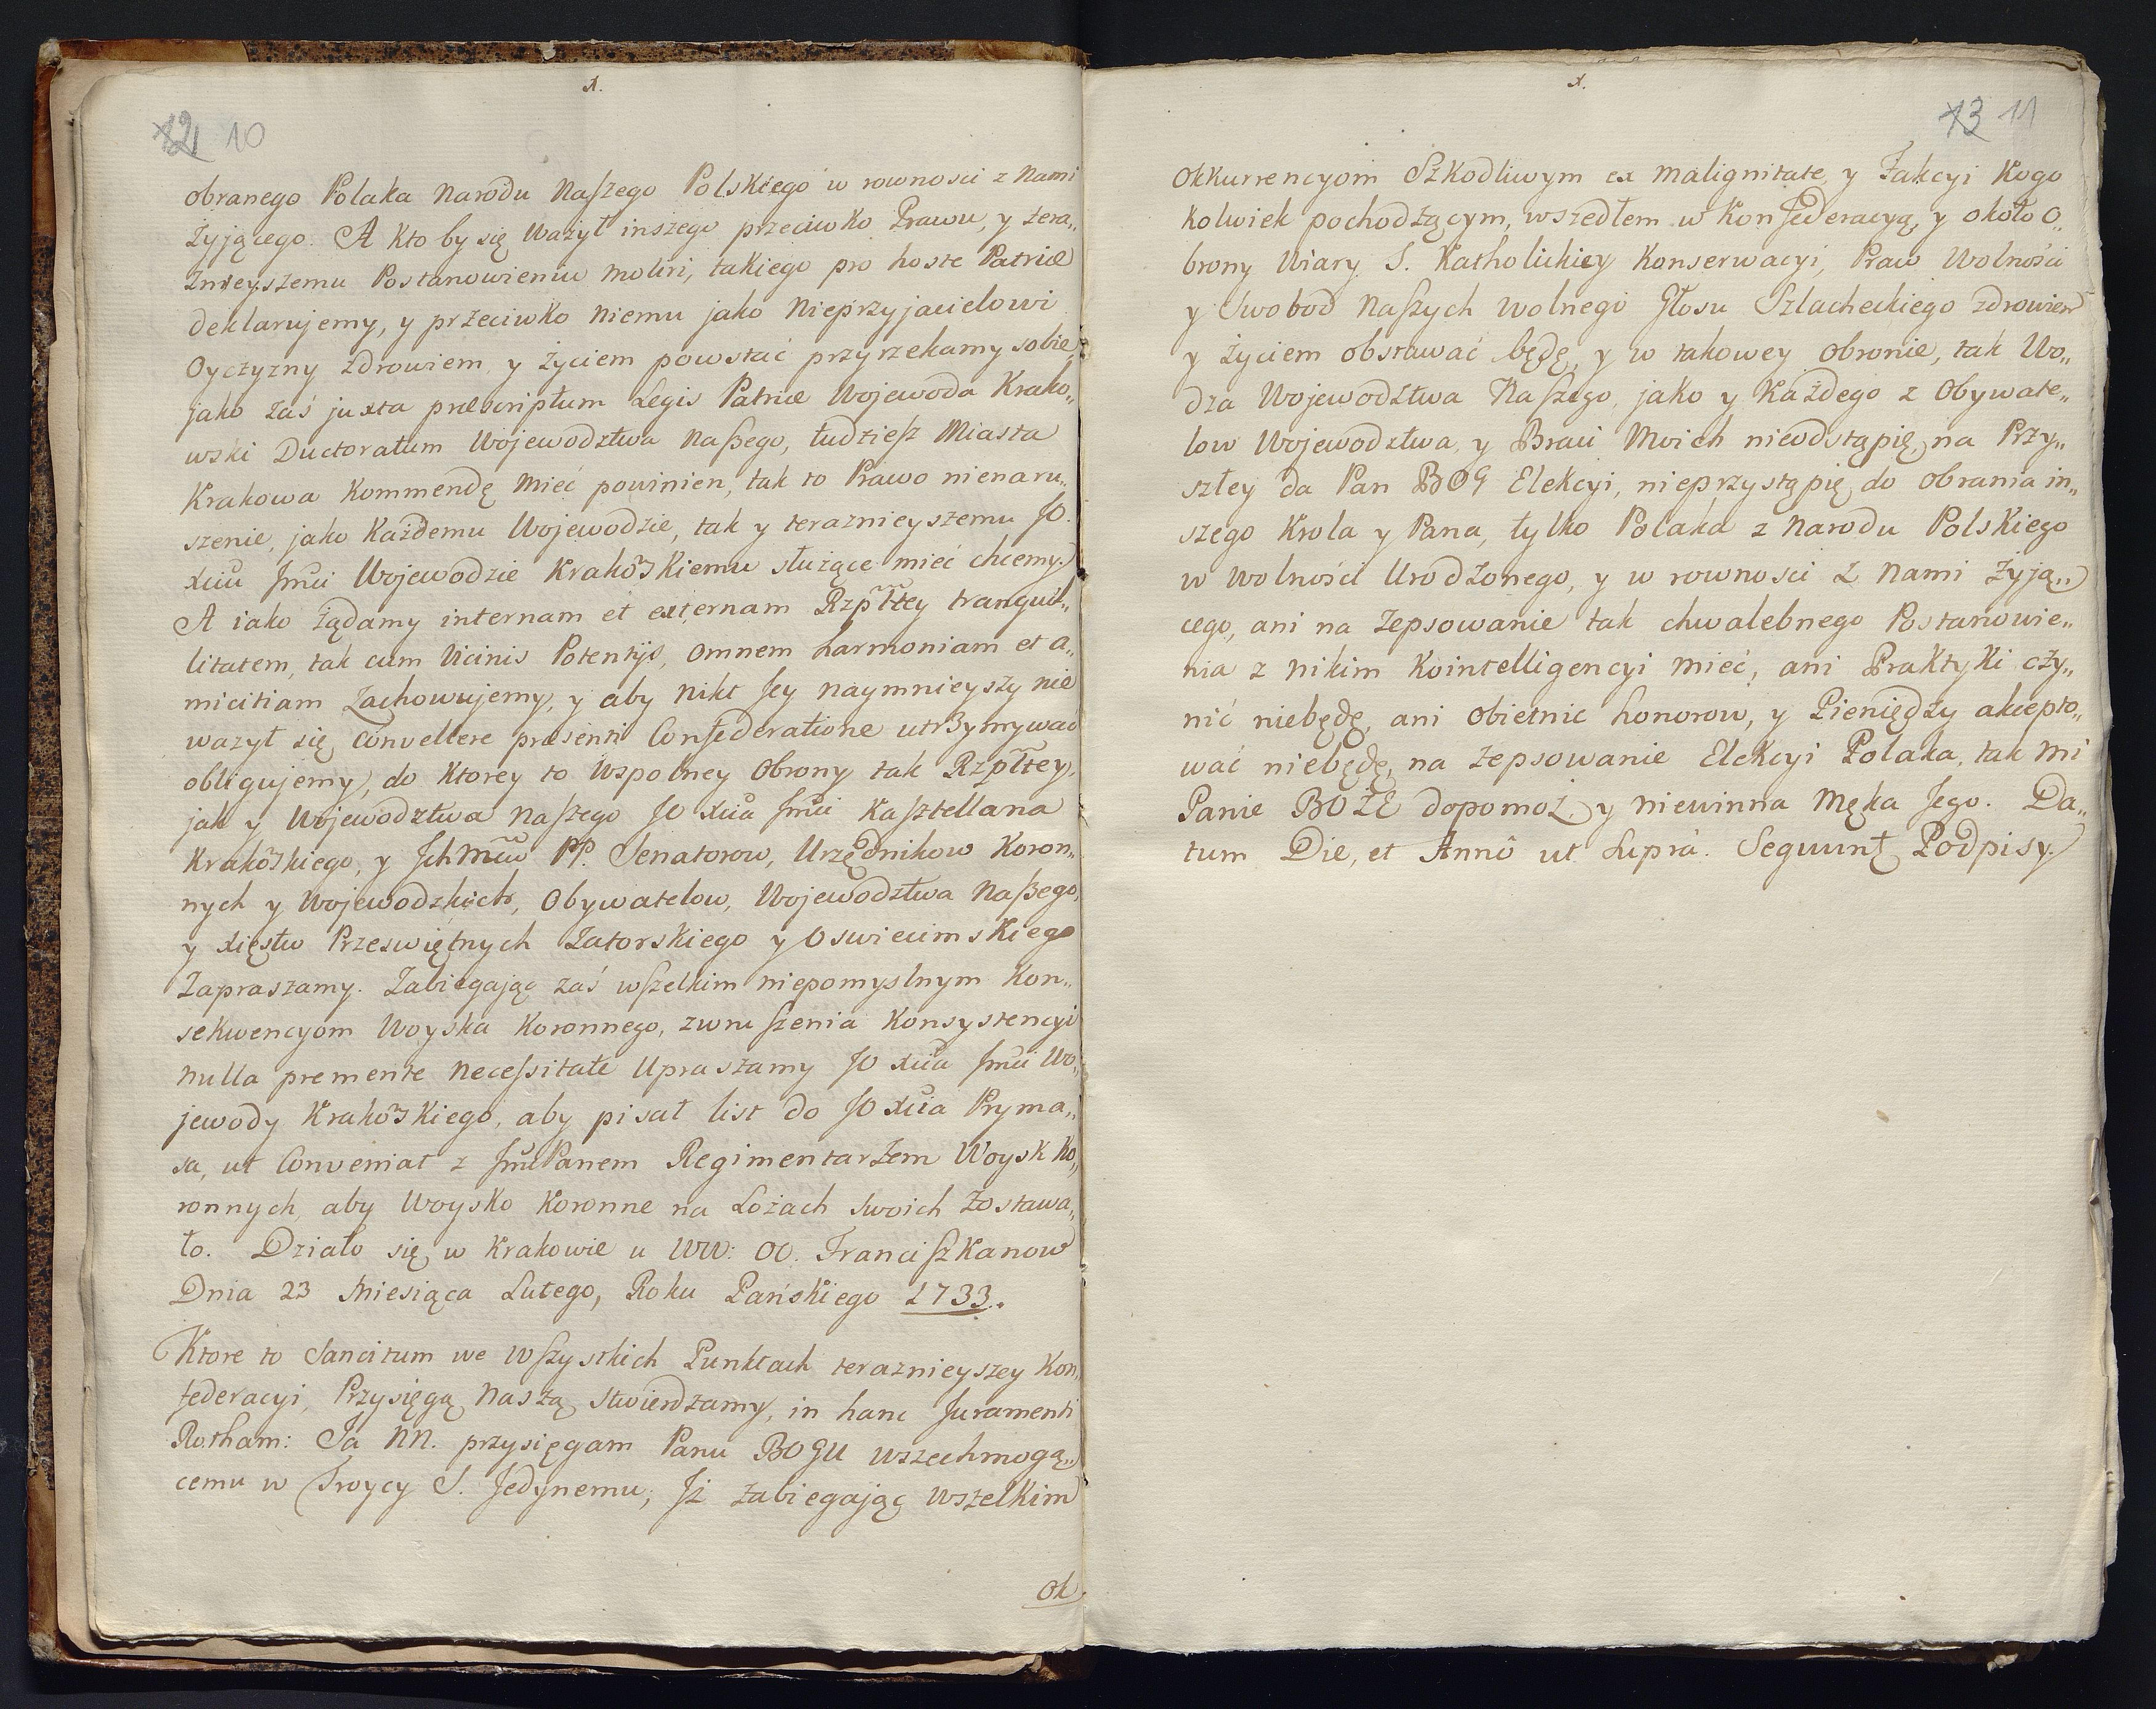 A.
12 10
obranego Polaka Narodu Naszego Polskiego w rownosci z Nami
żyjącego. A kto by się ważył inszego przeciwko Prawu, y tera„
znieyszemu Postanowieniu moliri, takiego pro hoste Patriæ
deklarujemy, y przeciwko niemu jako Nieprzyjacielowi
Oyczyzny zdrowiem y życiem powstać przyrzekamy sobie,
jako zaś juxta præscriptum Legis Patriæ Wojewoda Krako„
wski Ductoratum Wojewodztwa Naszego, tudziesz Miasta
Krakowa Kommendę mieć powinien, tak to Prawo nienaru„
szenie, jako Każdemu Wojewodzie, tak y teraznieyszemu JO.
Xciu Jmci Wojewodzie Krakowskiemu służące mieć chcemy.
A iako żądamy internam et externam Rzpltey tranquil„
litatem, tak cum Vicinis Potentijs, omnem harmoniam et a„
micitiam Zachowujemy, y aby nikt Jey naymnieyszy nie
ważył się convellere præsenti Confederatione utrzymywać
obligujemy, do Ktorey to Wspolney Obrony tak Rzpltey,
jak y Wojewodztwa naszego JO Xcia Jmci Kasztellana
Krakowskiego, y Jchmciow PP. Senatorow, Urzędnikow Koron„
nych y Wojewodzkich, Obywatelow, Wojewodztwa Naszego,
y Xięstw Przeswiętnych Zatorskiego y Oswiecimskiego
Zapraszamy. Zabiegając zaś wszelkim niepomyslnym Kon„
sekwencyom Woyska Koronnego, zwruszenia Konsystencyi
nulla premente necessitate Upraszamy JO Xcia Jmci Wo„
jewody Krakowskiego, aby pisał list do JO Xcia Pryma„
sa, ut Conveniat z JmcPanem Regimentarzem Woysk Ko„
ronnych, aby Woysko Koronne na Lożach swoich zostawa„
ło. Działo się w Krakowie u WW: OO. Franciszkanow
Dnia 23 Miesiąca Lutego, Roku Pańskiego 1733.
Ktore to Sancitum we wszystkich Punktach teraznieyszey Kon„
federacyi, Przysięgą Naszą stwierdzamy, in hanc Juramenti
Rotham: Ja NN. przysięgam Panu BOGU wszechmogą„
cemu w Troycy S. Jedynemu, Jż zabiegając wszelkim
ok
A.
13 11
okkurrencyom Szkodliwym ex malignitate, y Fakcyi Kogo
kolwiek pochodzącym, wszedłem w Konfederacyą, y około o„
brony Wiary S. Katholickiey Konserwacyi, Praw Wolności
y Swobod Naszych wolnego Głosu Szlacheckiego zdrowiem
y życiem obstawać będę, y w takowey obronie, tak Wo„
dza Wojewodztwa Naszego, jako y Każdego z Obywate„
low Wojewodztwa, y Braci Moich nieodstąpię, na Przy„
szłey da Pan BOG Elekcyi, nieprzystąpię do obrania in„
szego Krola y Pana, tylko Polaka z Narodu Polskiego
w Wolności Urodzonego, y w rownosci z Nami żyją„
cego, ani na Zepsowanie tak chwalebnego Postanowie„
nia z nikim Kointelligencyi mieć, ani Praktyki czy„
nić niebędę, ani obietnic honorow, y Pieniędzy akcepto„
wać niebędę, na zepsowanie Elekcyi Polaka, tak mi
Panie BOŻE dopomoż, y niewinna Męka Jego. Da„
tum Die, et Annô ut suprà. Sequunt Podpisy.